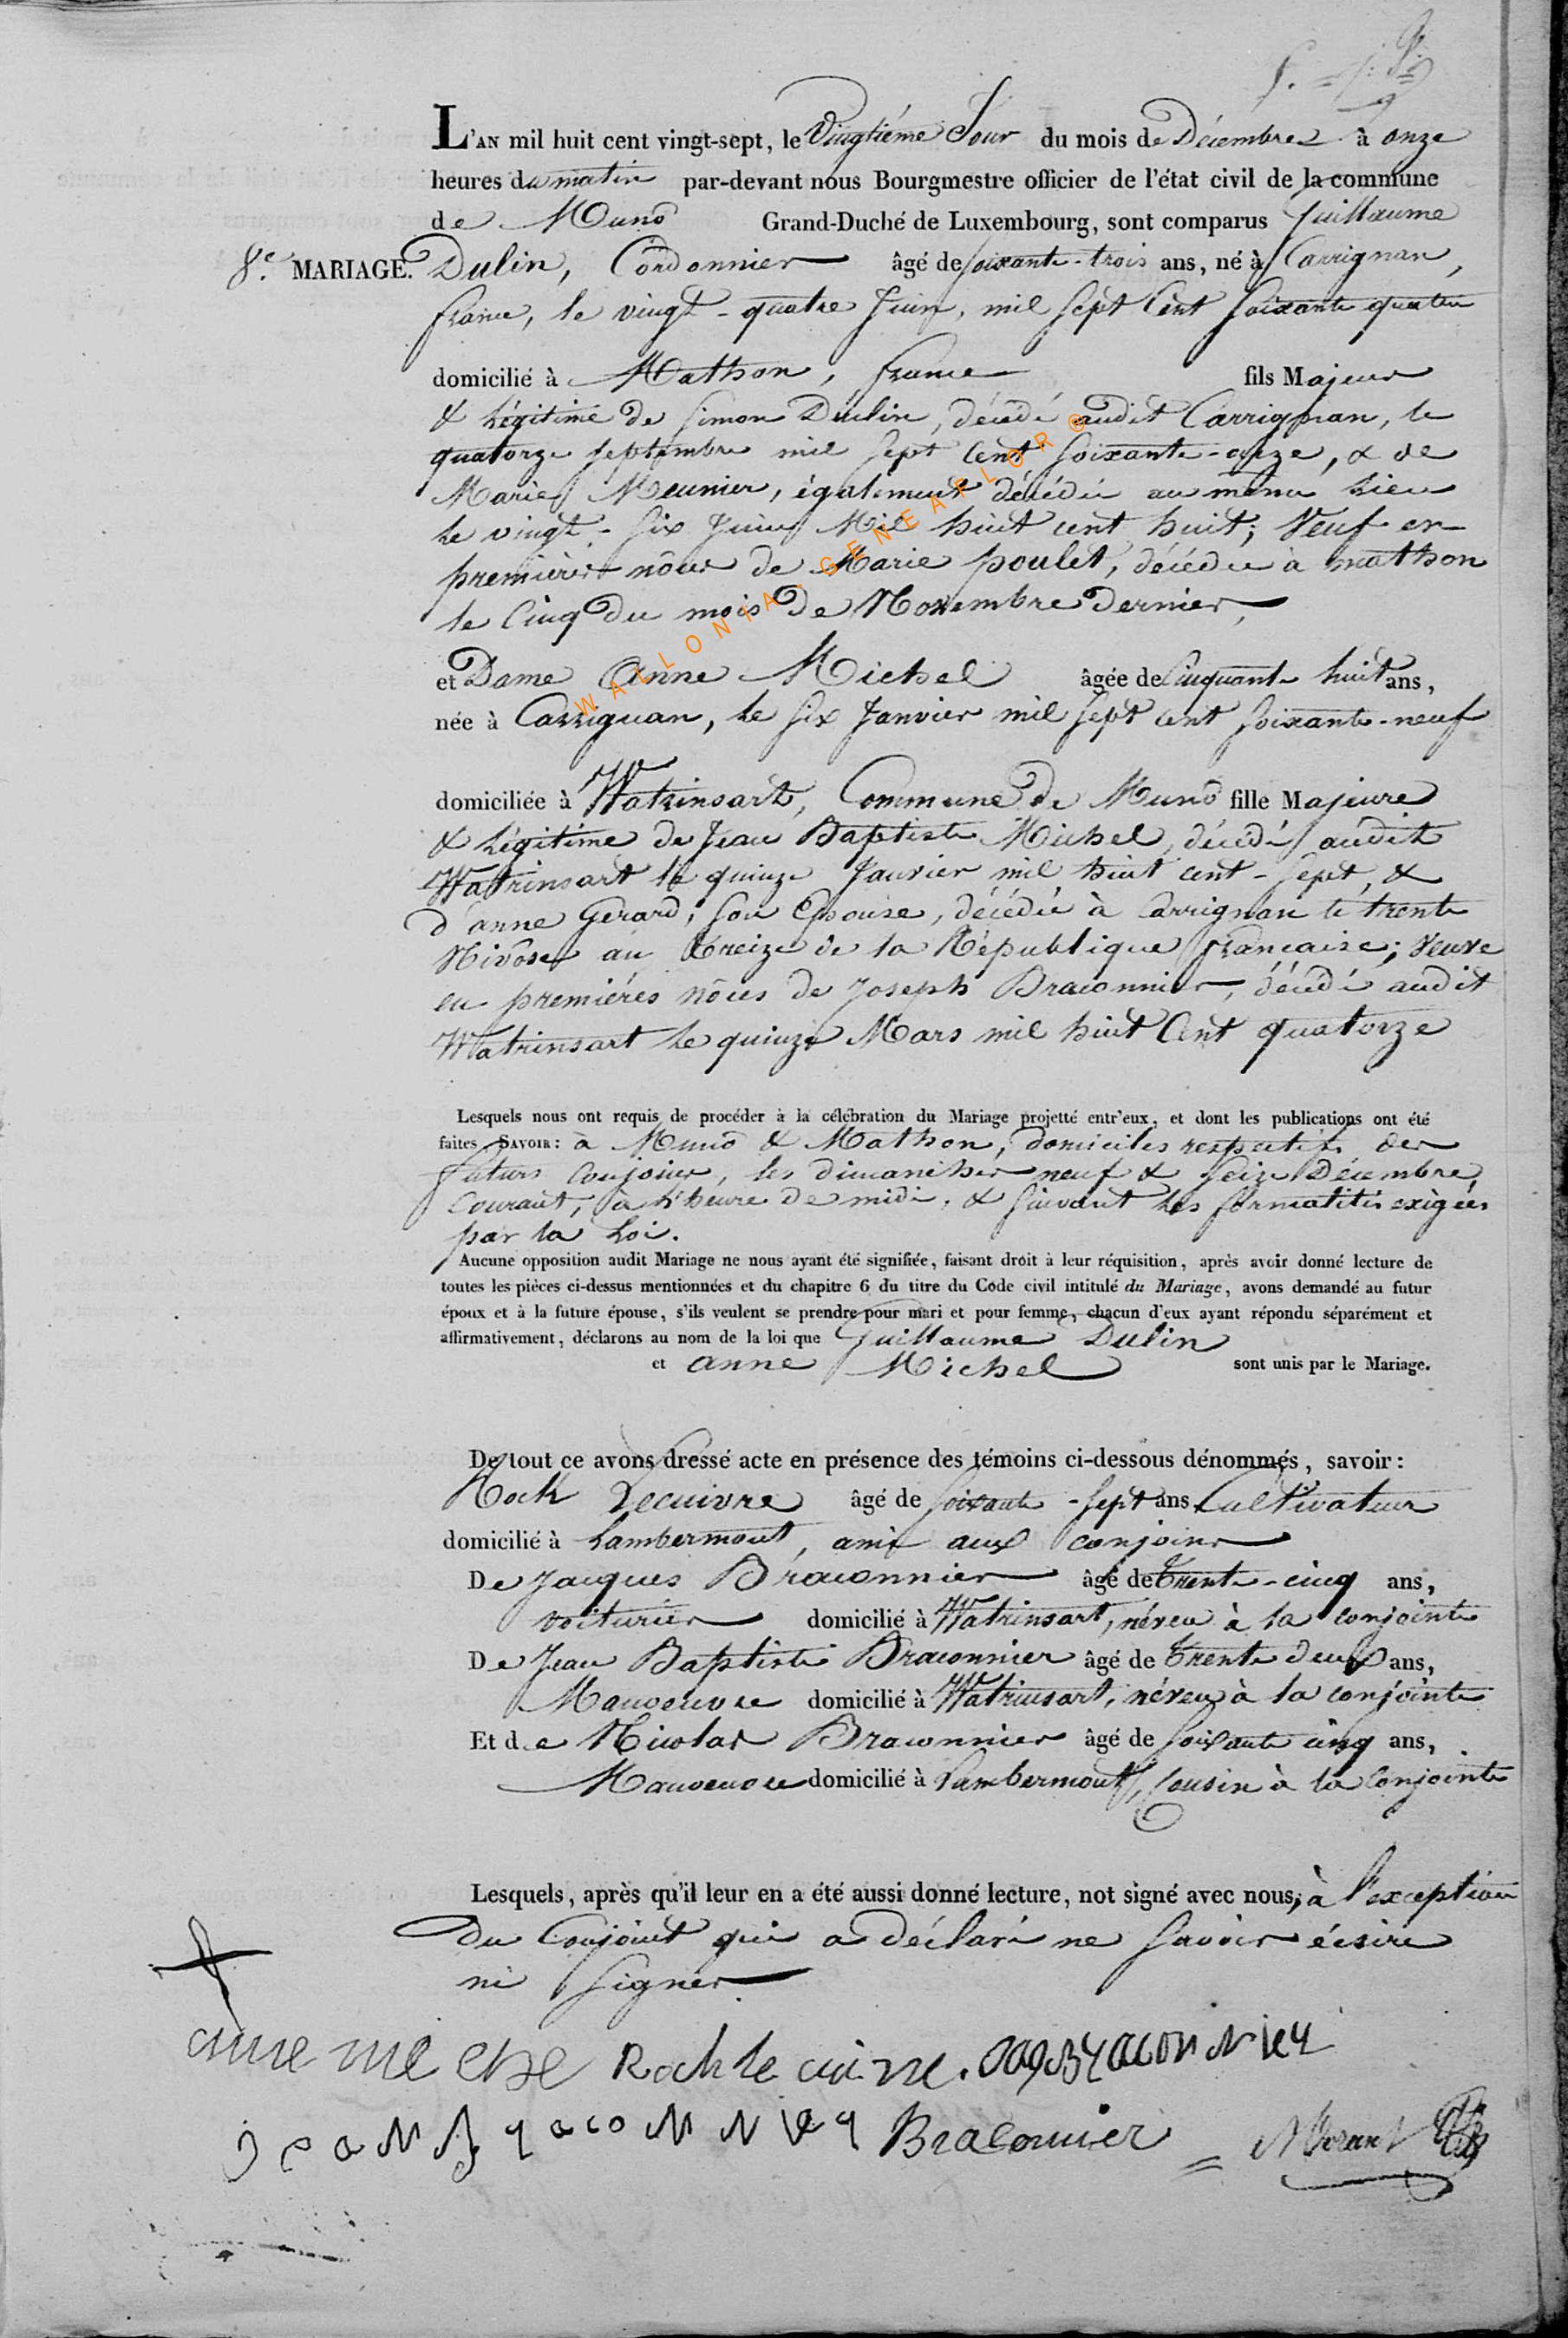 L'AN mil huit cent vingt-sept, le Vingtiéme Jour du mois de Décembre à onze
heures du matin par-devant nous Bourgmestre officier de l'état civil de la commune
de Muno Grand-Duché de Luxembourg, sont comparus Guillaume
8.e MARIAGE. Dulin, Cordonnier âgé de soixante-trois ans, né à Carrignan,
france, le vingt-quatre Juin, mil Sept Cent Soixante quatre
domicilié à Mathon, france fils Majeur
& Légitime de Simon Dulin, décédé audit Carrignan, le
quatorze septembre mil Sept Cent Soixante-onze, & de
Marie Meunier, également décédée au même Lieu
le vingt-Six Juin Mil huit cent huit; Veuf en
premières nôces de Marie poulet, décédée à mathon
le Cinq du mois de Novembre dernier,
et Dame Anne Michel âgée de Cinquante huit ans,
née à Carrignan, le Six Janvier mil Sept cent Soixante-neuf
domiciliée à Watrinsart, Commune de Muno fille Majeure
& Légitime de Jean Baptiste Michel, décédé audit
Watrinsart le quinze Janvier mil huit cent-Sept, &
d'anne Gerard, Son Epouse, décédée à Carrignan le trente
Nivôse an treize de la République française; Veuve
en premiéres nôces de Joseph Braconnier, décédé audit
Watrinsart le quinze Mars mil huit Cent quatorze
Lesquels nous ont requis de procéder à la célébration du Mariage projetté entr'eux, et dont les publications ont été
faites, SAVOIR : à Muno & Mathon, domiciles respectifs des
futurs Conjoins, les dimanches neuf & Seize Décembre,
Courant, à l'heure de midi, & Suivant les formalités exigées
par la Loi.
Aucune opposition audit Mariage ne nous ayant été signifiée, faisant droit à leur réquisition, après avoir donné lecture de
toutes les pièces ci-dessus mentionnées et du chapitre 6 du titre du Code civil intitulé du Mariage, avons demandé au futur
époux et à la future épouse, s'ils veulent se prendre pour mari et pour femme, chacun d'eux ayant répondu séparément et
affirmativement, déclarons au nom de la loi que Guillaume Dulin
et anne Michel sont unis par le Mariage.
De tout ce avons dressé acte en présence des témoins ci-dessous dénommés, savoir :
Rock Lecuivre âgé de Soixante-Sept ans Cultivateur
domicilié à Lambermont, ami aux conjoins
De Jacques Braconnier âgé de Trente-cinq ans,
voiturier domicilié à Watrinsart, néveu à la conjointe
De Jean Baptiste Braconnier âgé de Trente deux ans,
Manoeuvre domicilié à Watrinsart, néveu à la conjointe
Et de Nicolas Braconnier âgé de Soixante cinq ans,
Manoeuvre domicilié à Lambermont, Cousin à la Conjointe
Lesquels, après qu'il leur en a été aussi donné lecture, not signé avec nous, à l'exception
du Conjoint qui a déclaré ne Savoir écrire
ni Signer
anne mi chel Rock le cuivre.
Jean Braconnier Braconnier
WALLONIA-GENEAFLOR©